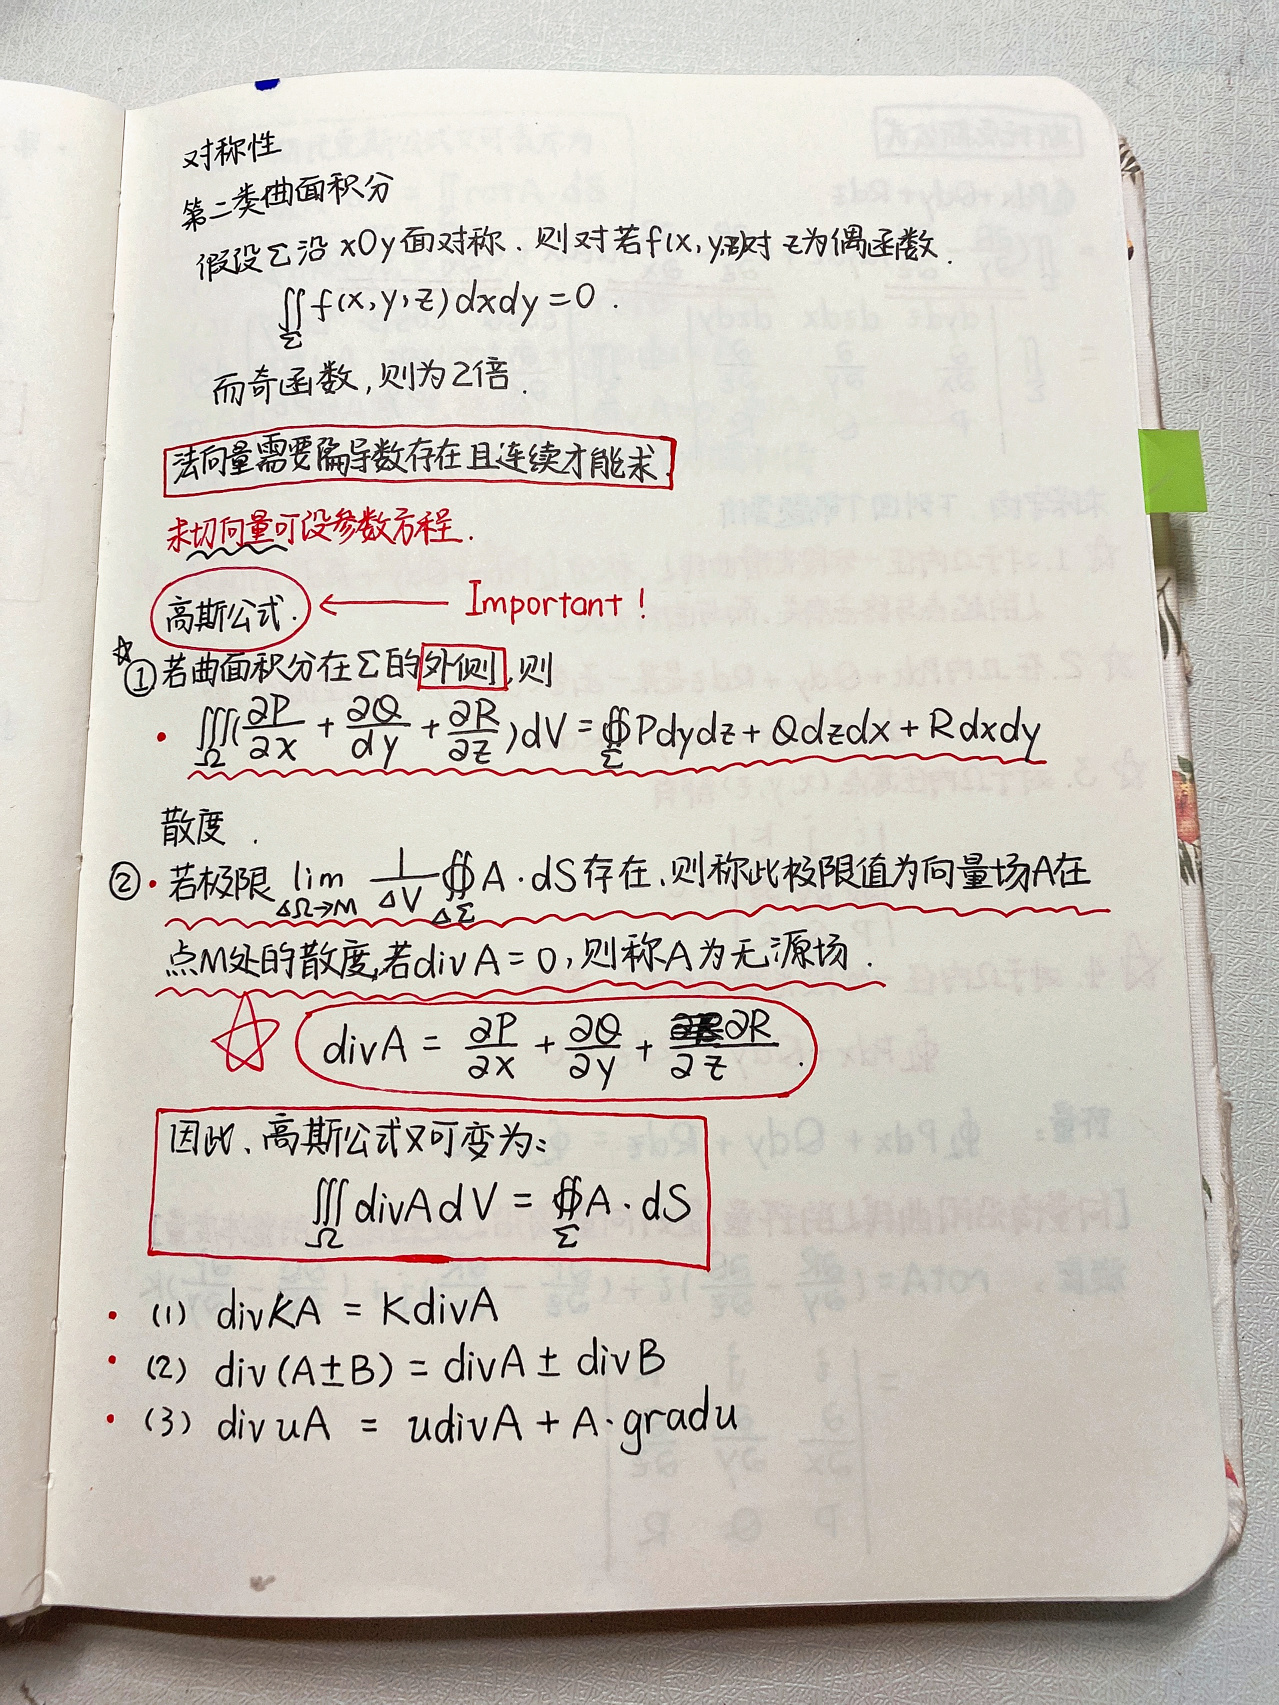 对称性
第二类曲面积分
假设Σ沿xOy面对称.则对若f(x,y,z)对z为偶函数.
∬_Σ f(x,y,z)dxdy=0.
而奇函数,则为2倍.
法向量需要偏导数存在且连续才能求.
求切向量可设参数方程.
高斯公式. ← Important!
☆①若曲面积分在Σ的外侧,则
·∭_Ω(∂P/∂x + ∂Q/dy + ∂R/∂z)dV = ∯_Σ Pdydz + Qdzdx + Rdxdy
散度.
②·若极限 lim_{ΔΩ→M} 1/ΔV ∯_{ΔΣ} A·dS存在,则称此极限值为向量场A在
点M处的散度,若divA=0,则称A为无源场.
☆ divA = ∂P/∂x + ∂Q/∂y + ∂R/∂z.
因此、高斯公式又可变为:
∭_Ω divAdV = ∯_Σ A·dS
·(1) divKA = KdivA
·(2) div(A±B) = divA ± divB
·(3) div uA = udivA + A·gradu